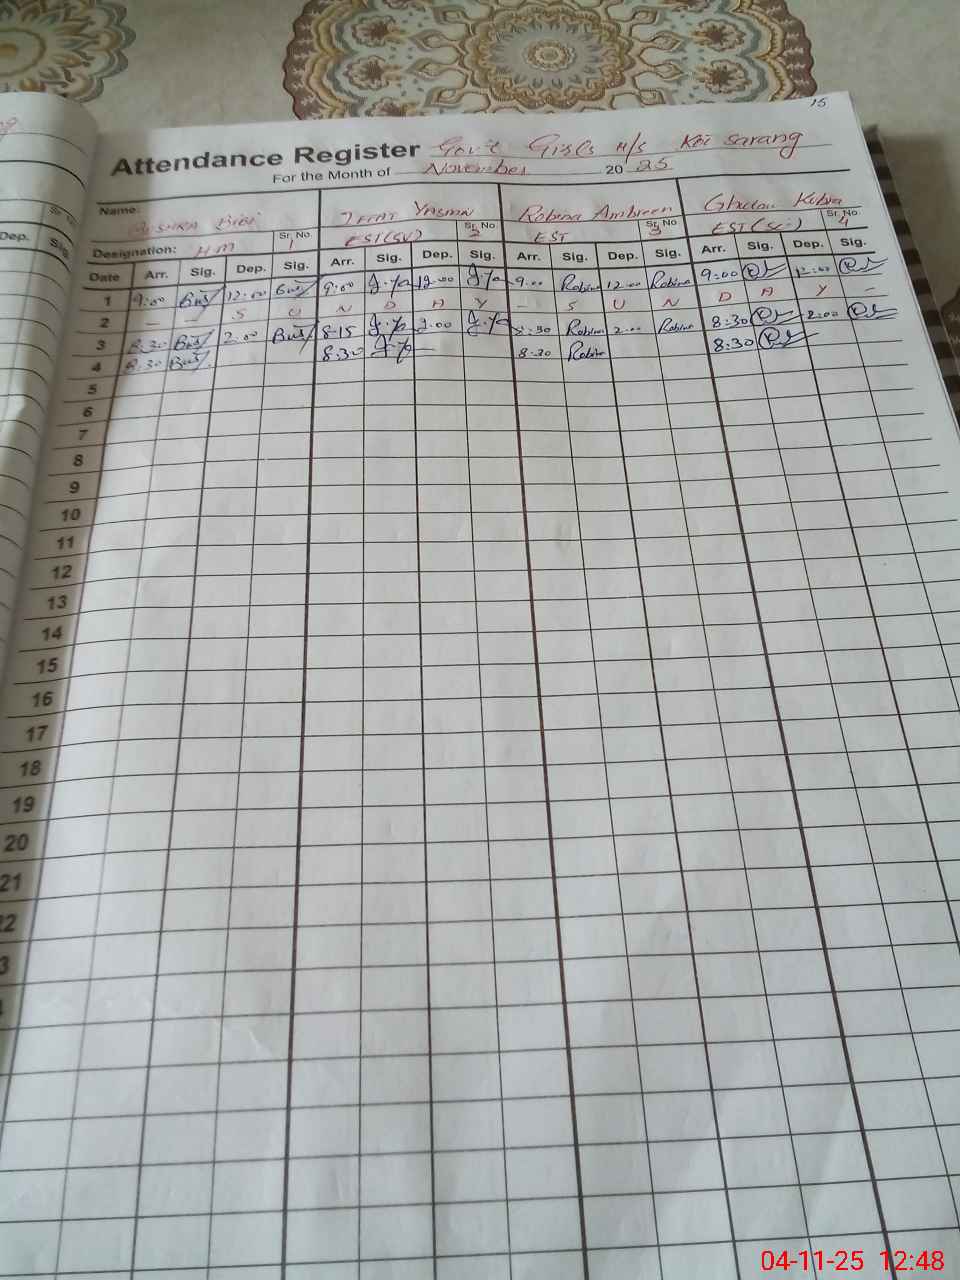 15
Attendance Register Gov't Girls H/S Koi Sarang
For the Month of November 2025
Name: Bushra Bibi Iffat Yasmin Robina Ambreen Kubra
Designation: HM Sr. No. 1 EST(SV) Sr. No. 2 EST Sr. No. 3 EST(Sc.) Sr. No. 4
Date Arr. Sig. Dep. Sig. Arr. Sig. Dep. Sig. Arr. Sig. Dep. Sig. Arr. Sig. Dep. Sig.
1 9:00 12:00 9:00 12:00 9:00 Robina 12:00 Robina 9:00 12:00
2 - S U N D A Y - S U N D A Y -
3 8:30 2:00 8:15 2:00 8:30 Robina 2:00 Robina 8:30 2:00
4 8:30 8:30 - 8:30 Robina 8:30
5
6
7
8
9
10
11
12
13
14
15
16
17
18
19
20
21
22
3
Dep.
04-11-25 12:48